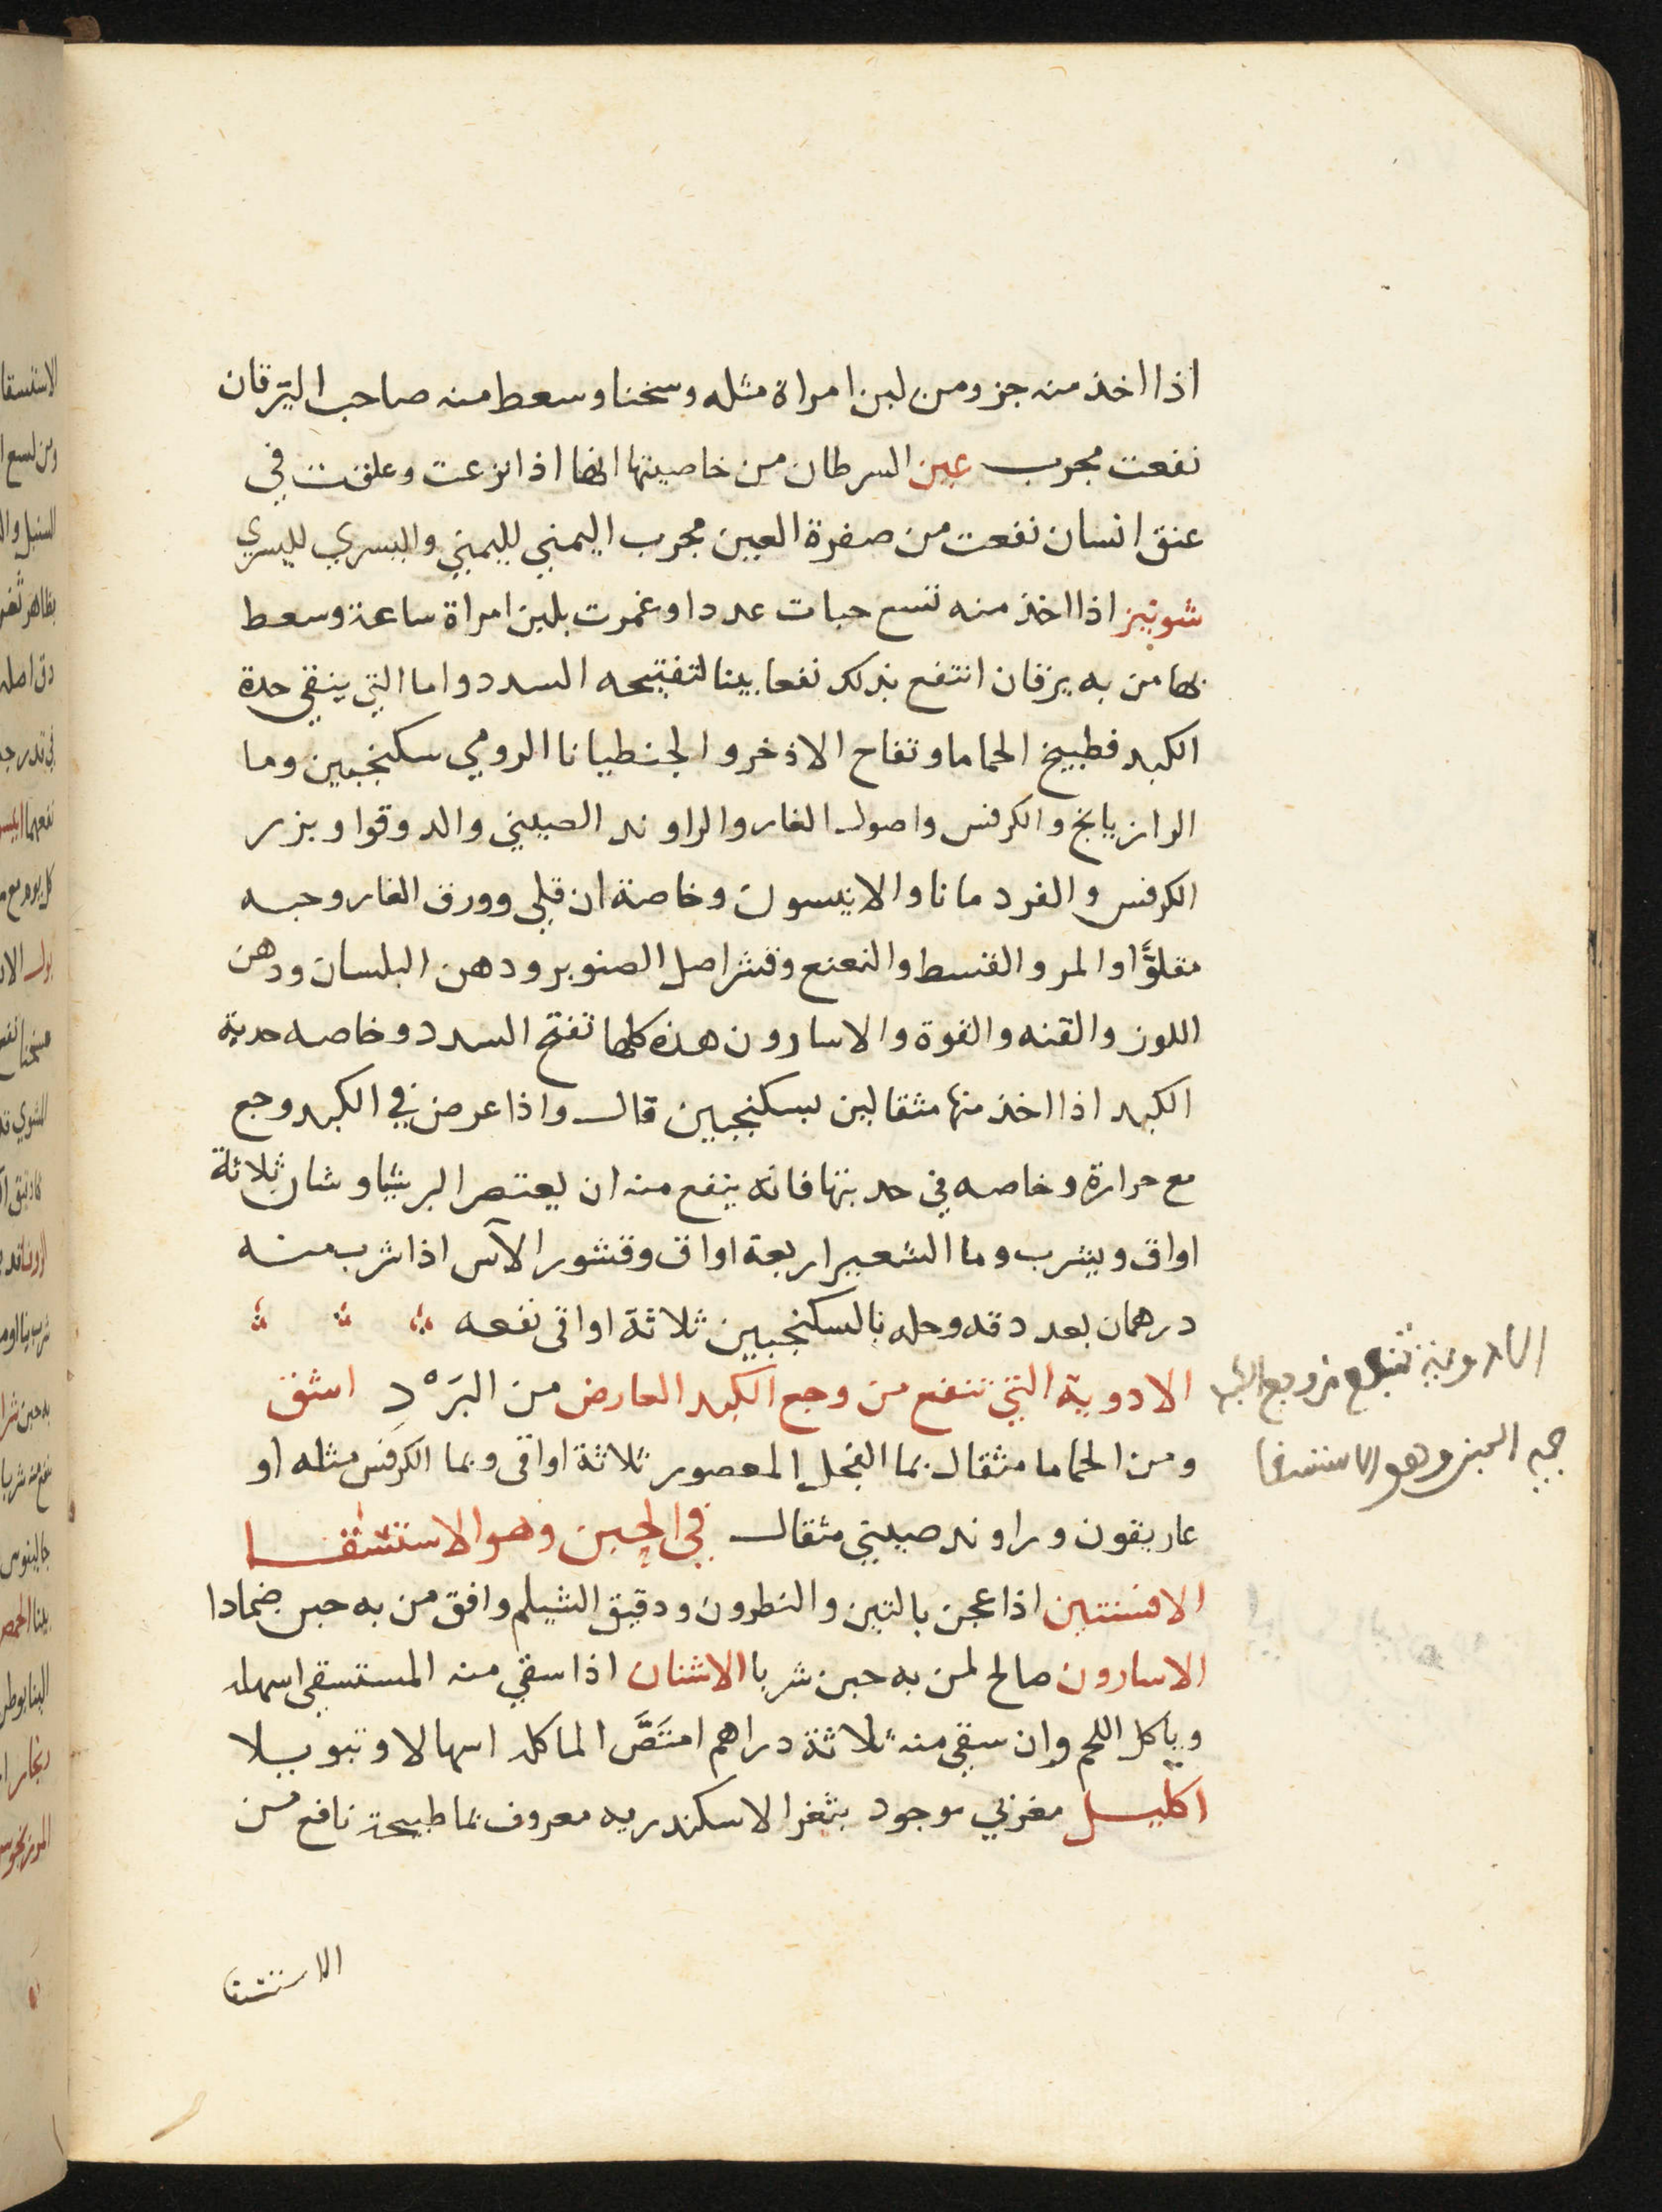 اذا اخذ منه جزو ومن لبن امراة مثله وسخنا وسعط منه صاحب اليرقان
نفعت مجرب عين السرطان من خاصيتها انها اذا نزعت وعلقت في
عنق انسان نفعت من صفرة العين مجرب اليمني لليمني واليسري لليسري
شونيز اذا اخذ منه تسع حبات عددا وغمرت بلبن امراة ساعة وسعط
بها من به يرقان انتفع بذلك نفعا بينا لتفتيحه السدد واما التي ينقي حدة
الكبد فطبيخ الحماما وتفاح الاذخر والجنطيانا الرومي سكنجبين وما
الرازيانج والكرفس واصول الغار والراوند الصيني والدوقوا وبزر
الكرفس والقردمانا والانيسون وخاصة ان قلي وورق الغار وحبه
مقلوًّا والمر والقسط والنعنع وقشر اصل الصنوبر ودهن البلسان ودهن
اللوز والقنه والفوة والاسارون هذه كلها تفتح السدد وخاصه حدبة
الكبد اذا اخذ منها مثقالين بسكنجبين قال واذا عرض في الكبد وجع
مع حرارة وخاصه في حدبتها فانه ينفع منه ان يعتصر البرشياوشان ثلاثة
اواق ويشرب وما الشعير اربعة اواق وقشور الآس اذا شرب منه
درهمان بعد دقه وحله بالسكنجبين ثلاثة اواقي نفعه
الادوية التي تنفع من وجع الكبد العارض من البَرْدِ اشق
ومن الحماما مثقال بما الفجل المعصور ثلاثة اواقي وبما الكرفس مثله او
غاريقون وراوند صيني مثقال في الحبن وهو الاستسقا
الافسنتين اذا عجن بالتين والنطرون ودقيق الشيلم وافق من به حبن ضمادا
الاسارون صالح لمن به حبن شربا الاشنان اذا سقي منه المستسقي اسهله
وياكل اللحم وان سقي منه ثلاثة دراهم امتَصَّ الما كله اسهالا وتبويلا
اكليل مغربي موجود بثغر الاسكندريه معروف بما طبيخه نافع من
الادوية تنفع من وجع الكبد
الحبن وهو الاستسقا
الاستسقا